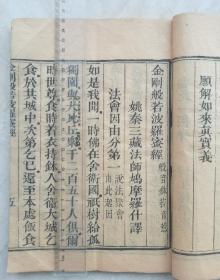 願解如來眞實義
金剛般若波羅蜜經
姚秦三藏法師鳩摩羅什譯
法會因由分第一 說法聚會
由此起因
如是我聞一時佛在舍衛國祇樹給孤
獨園與大比丘衆千二百五十人俱爾
時世尊食時着衣持鉢入舍衛大城乞
食於其城中次第乞已還至本處飯食
金剛般若波羅蜜經 五